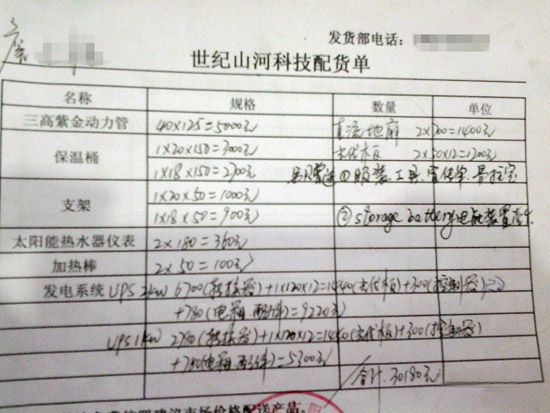 发货部电话:
世纪山河科技配货单
名称 规格 数量 单位
三高紫金动力管 40×125=5000元 直流地扇 2×700=1400元
保温桶 1×20×150=3000元 光伏板 2×50×12=1200元
1×18×150=2700元 ①服装工具、宣传单
支架 1×20×50=1000元
1×18×50=900元 ②storage battery
太阳能热水器仪表 2×180=360元
加热棒 2×50=100元
发电系统 UPS 2kw 6700(转换器)+1×120×12=1440(光伏板)+300(控制器)
+780(电箱、配件)=9220元
UPS 1kw 2780(转换器)+1×120×12=1440(光伏板)+300(控制器)
+780(电箱、配件)=5300元
合计:30180元
建议市场价格配送产品。